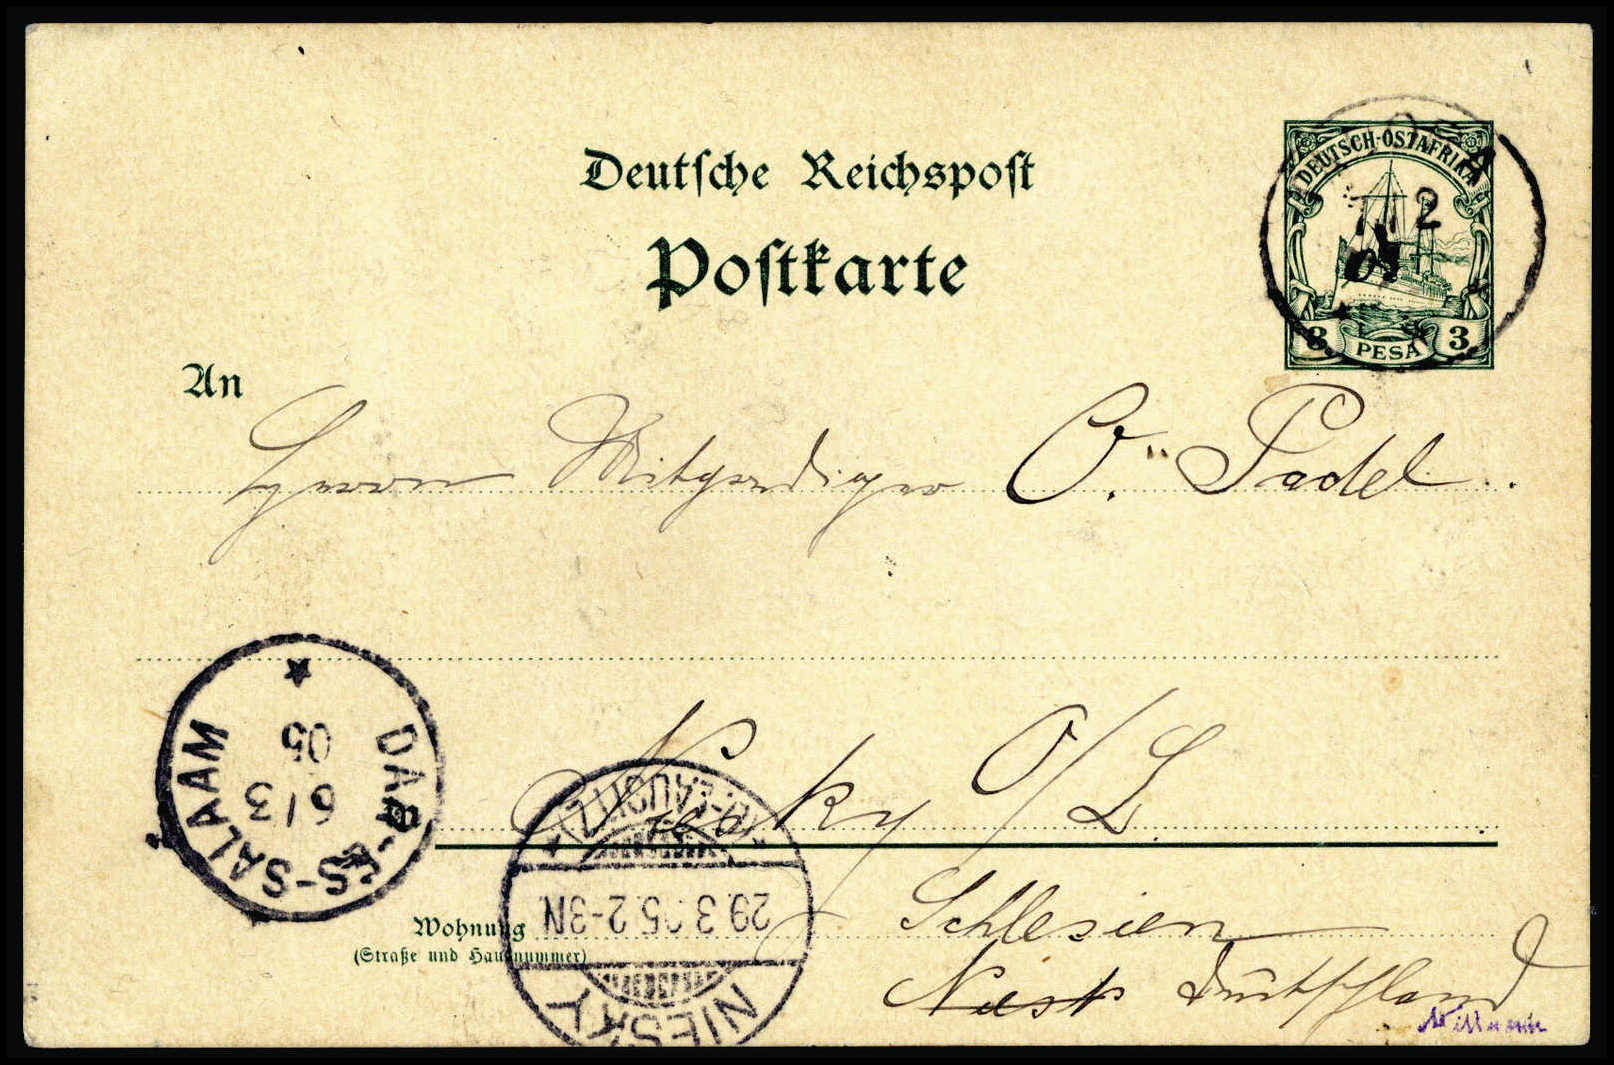 Deutsche Reichspost
Postkarte
DEUTSCH-OSTAFRIKA
2
3 PESA 3
An
Herrn O. Padel
Niesky O/L
DAR-ES-SALAAM
6/3
05
(O.-LAUSITZ)
29.3.05.2-3N.
NIESKY
Wohnung
(Straße und Hausnummer)
Schlesien
Deutschland